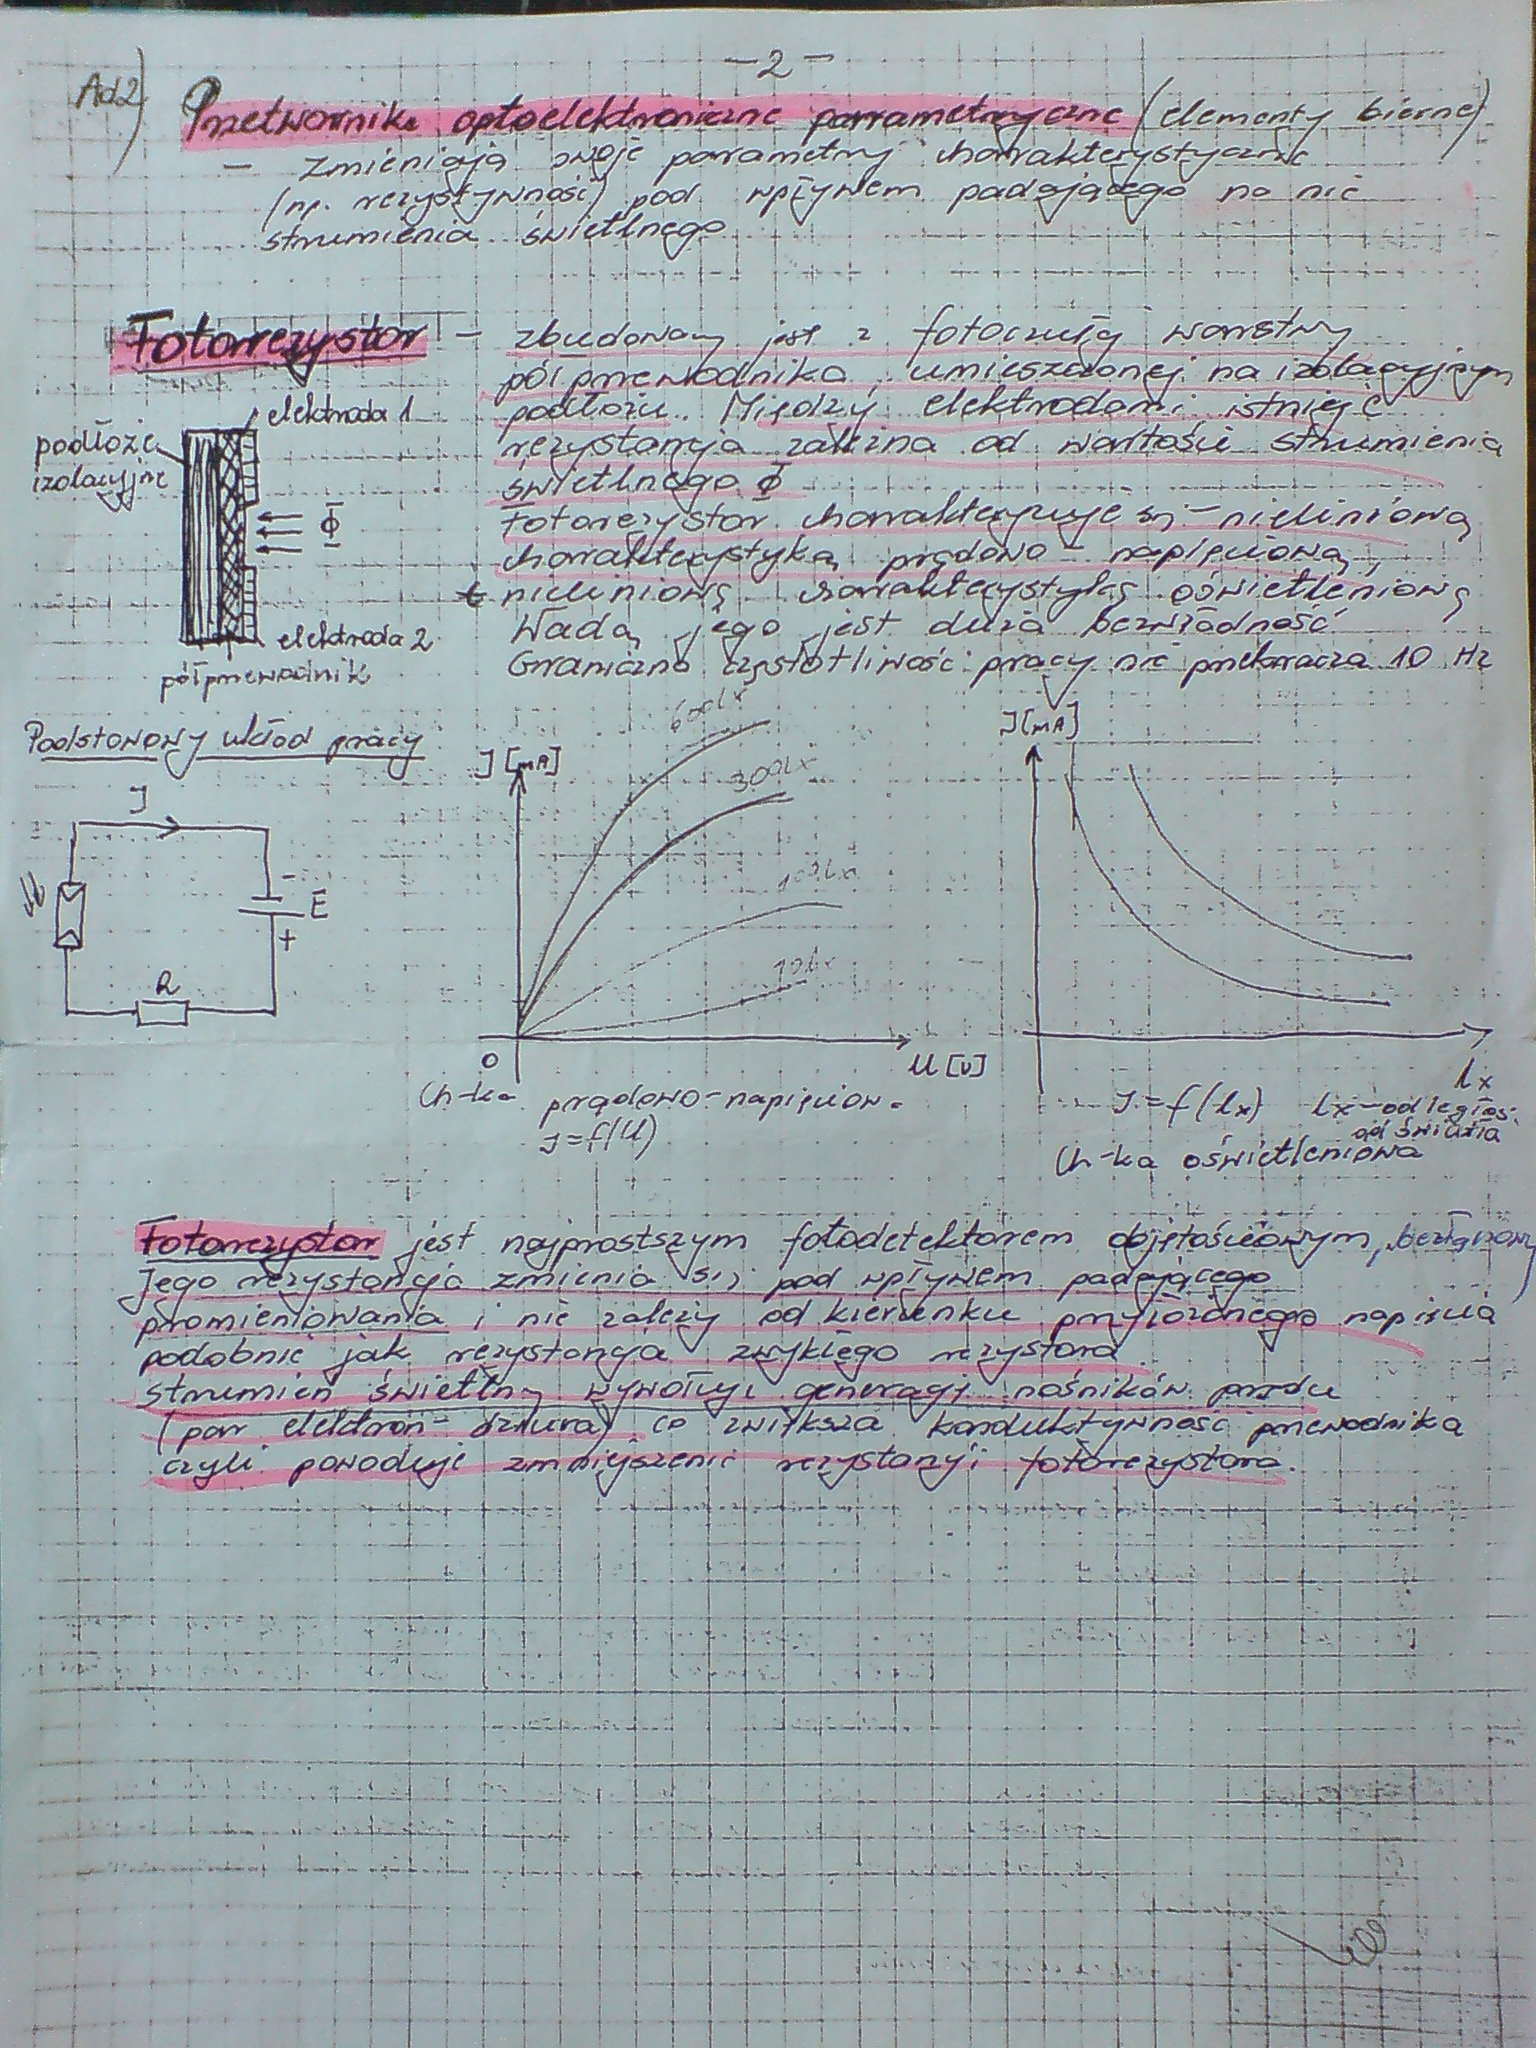 - 2 -
Ad2) Przetworniki optoelektroniczne parametryczne (elementy bierne)
- zmieniają swoje parametry charakterystyczne
(np. rezystywność) pod wpływem padającego na nie
strumienia świetlnego
Fotorezystor - zbudowany jest z fotoczułej warstwy
półprzewodnika umieszczonej na izolacyjnym
podłożu. Między elektrodami istnieje
rezystancja zależna od wartości strumienia
świetlnego Φ
Fotorezystor charakteryzuje się - nieliniową
charakterystyką prądowo - napięciową,
nieliniową charakterystyką oświetleniową
Wadą jego jest duża bezwładność
Graniczna częstotliwość pracy nie przekracza 10 Hz
elektroda 1
podłoże
izolacyjne
Φ
elektroda 2
półprzewodnik
Podstawowy układ pracy
I
-
E
+
R
I [mA]
600lx
300lx
100lx
10lx
0
U [V]
Ch-ka prądowo-napięciow.
I=f(U)
I[mA]
lx
I=f(lx) lx-odległoś.
od światła
Ch-ka oświetleniowa
Fotorezystor jest najprostszym fotodetektorem objętościowym, bezzłączowy
Jego rezystancja zmienia się pod wpływem padającego
promieniowania i nie zależy od kierunku przyłożonego napięcia
podobnie jak rezystancja zwykłego rezystora
strumień świetlny wywołuje generację nośników prądu
(par elektron - dziura) co zwiększa konduktywność przewodnika
czyli powoduje zmniejszenie rezystancji fotorezystora.